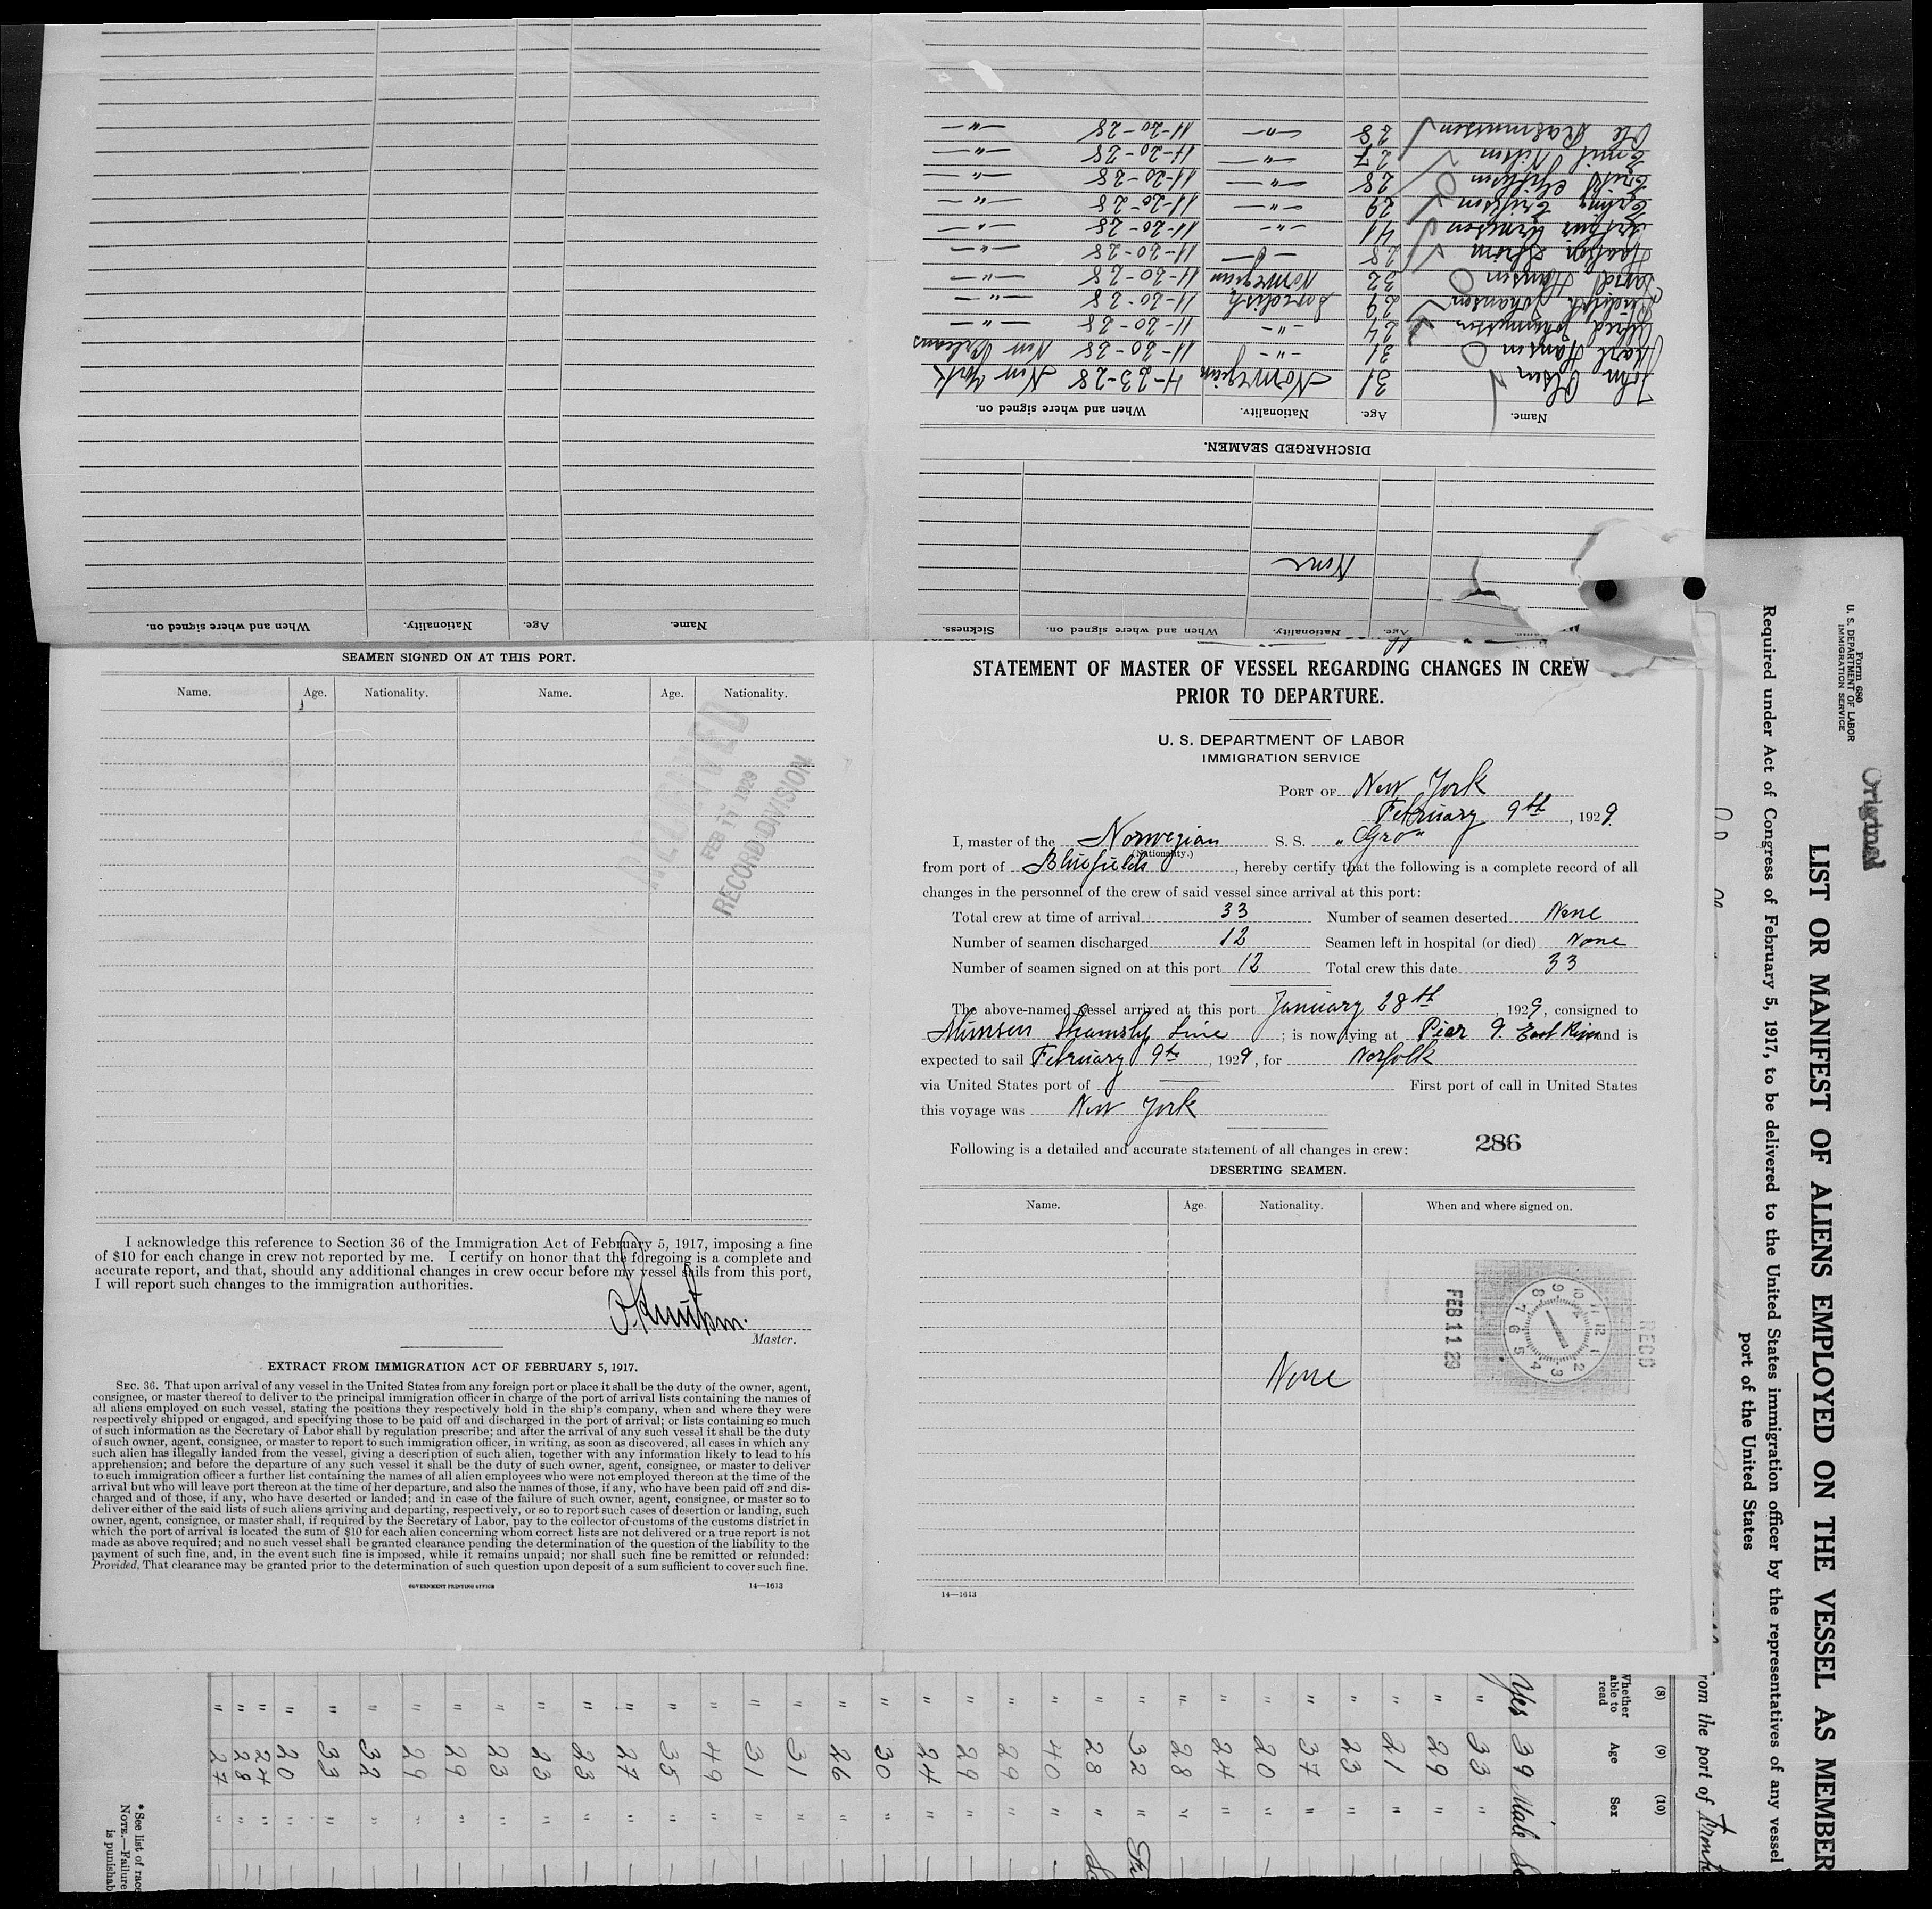 SEAMEN SIGNED ON AT THIS PORT.
Name. Age. Nationality. Name. Age. Nationality.
RECEIVED
FEB 11 1929
RECORD DIVISION
I acknowledge this reference to Section 36 of the Immigration Act of February 5, 1917, imposing a fine
of $10 for each change in crew not reported by me. I certify on honor that the foregoing is a complete and
accurate report, and that, should any additional changes in crew occur before my vessel sails from this port,
I will report such changes to the immigration authorities.
Master.
EXTRACT FROM IMMIGRATION ACT OF FEBRUARY 5, 1917.
SEC. 36. That upon arrival of any vessel in the United States from any foreign port or place it shall be the duty of the owner, agent,
consignee, or master thereof to deliver to the principal immigration officer in charge of the port of arrival lists containing the names of
all aliens employed on such vessel, stating the positions they respectively hold in the ship's company, when and where they were
respectively shipped or engaged, and specifying those to be paid off and discharged in the port of arrival; or lists containing so much
of such information as the Secretary of Labor shall by regulation prescribe; and after the arrival of any such vessel it shall be the duty
of such owner, agent, consignee, or master to report to such immigration officer, in writing, as soon as discovered, all cases in which any
such alien has illegally landed from the vessel, giving a description of such alien, together with any information likely to lead to his
apprehension; and before the departure of any such vessel it shall be the duty of such owner, agent, consignee, or master to deliver
to such immigration officer a further list containing the names of all alien employees who were not employed thereon at the time of the
arrival but who will leave port thereon at the time of her departure, and also the names of those, if any, who have been paid off and dis-
charged and of those, if any, who have deserted or landed; and in case of the failure of such owner, agent, consignee, or master so to
deliver either of the said lists of such aliens arriving and departing, respectively, or so to report such cases of desertion or landing, such
owner, agent, consignee, or master shall, if required by the Secretary of Labor, pay to the collector of customs of the customs district in
which the port of arrival is located the sum of $10 for each alien concerning whom correct lists are not delivered or a true report is not
made as above required; and no such vessel shall be granted clearance pending the determination of the question of the liability to the
payment of such fine, and, in the event such fine is imposed, while it remains unpaid; nor shall such fine be remitted or refunded:
Provided, That clearance may be granted prior to the determination of such question upon deposit of a sum sufficient to cover such fine.
GOVERNMENT PRINTING OFFICE 14—1613
STATEMENT OF MASTER OF VESSEL REGARDING CHANGES IN CREW
PRIOR TO DEPARTURE.
U. S. DEPARTMENT OF LABOR
IMMIGRATION SERVICE
PORT OF New York
February 9th, 1929
I, master of the Norwegian S. S. "Gro"
(Nationality.)
from port of Bluefields, hereby certify that the following is a complete record of all
changes in the personnel of the crew of said vessel since arrival at this port:
Total crew at time of arrival 33 Number of seamen deserted None
Number of seamen discharged 12 Seamen left in hospital (or died) None
Number of seamen signed on at this port 12 Total crew this date 33
The above-named vessel arrived at this port January 28th, 1929, consigned to
Munson Steamship Line; is now lying at Pier 9. East River and is
expected to sail February 9th, 1929, for Norfolk
via United States port of — First port of call in United States
this voyage was New York
Following is a detailed and accurate statement of all changes in crew: 286
DESERTING SEAMEN.
Name. Age. Nationality. When and where signed on.
RECD
FEB 11 29
None
14—1613
Sickness. When and where signed on. Nationality. Age. Name.
None
DISCHARGED SEAMEN.
Name. Age. Nationality. When and where signed on.
John Olsen 31 Norwegian 4-23-28 New York
Karl Hansen 31 -"- 11-20-28 New Orleans
Alfred 24 -"- 11-20-28 -"-
Johansen 29 Swedish 11-20-28 -"-
Hansen 32 Norwegian 11-20-28 -"-
28 -"- 11-20-28 -"-
41 -"- 11-20-28 -"-
Erling Eriksen 29 -"- 11-20-28 -"-
28 -"- 11-20-28 -"-
Emil Nilsen 27 -"- 11-20-28 -"-
Ole Rasmussen 38 -"- 11-20-28 -"-
Name. Age. Nationality. When and where signed on.
Original
Form 680
U. S. DEPARTMENT OF LABOR
IMMIGRATION SERVICE
LIST OR MANIFEST OF ALIENS EMPLOYED ON THE VESSEL AS MEMBER
Required under Act of Congress of February 5, 1917, to be delivered to the United States immigration officer by the representatives of any vessel
port of the United States
rom the port of
(8) (9) (10)
Whether able to read Age Sex
Yes 39 Male
" 33 "
" 29 "
" 21 "
" 23 "
" 37 "
" 20 "
" 24 "
" 28 "
" 32 "
" 28 "
" 40 "
" 29 "
" 29 "
" 24 "
" 30 "
" 26 "
" 31 "
" 31 "
" 49 "
" 35 "
" 27 "
" 23 "
" 23 "
" 23 "
" 29 "
" 29 "
" 32 "
" 33 "
" 20 "
" 24 "
" 28 "
" 27 "
* See list of rac
NOTE.—Failure
is punishab